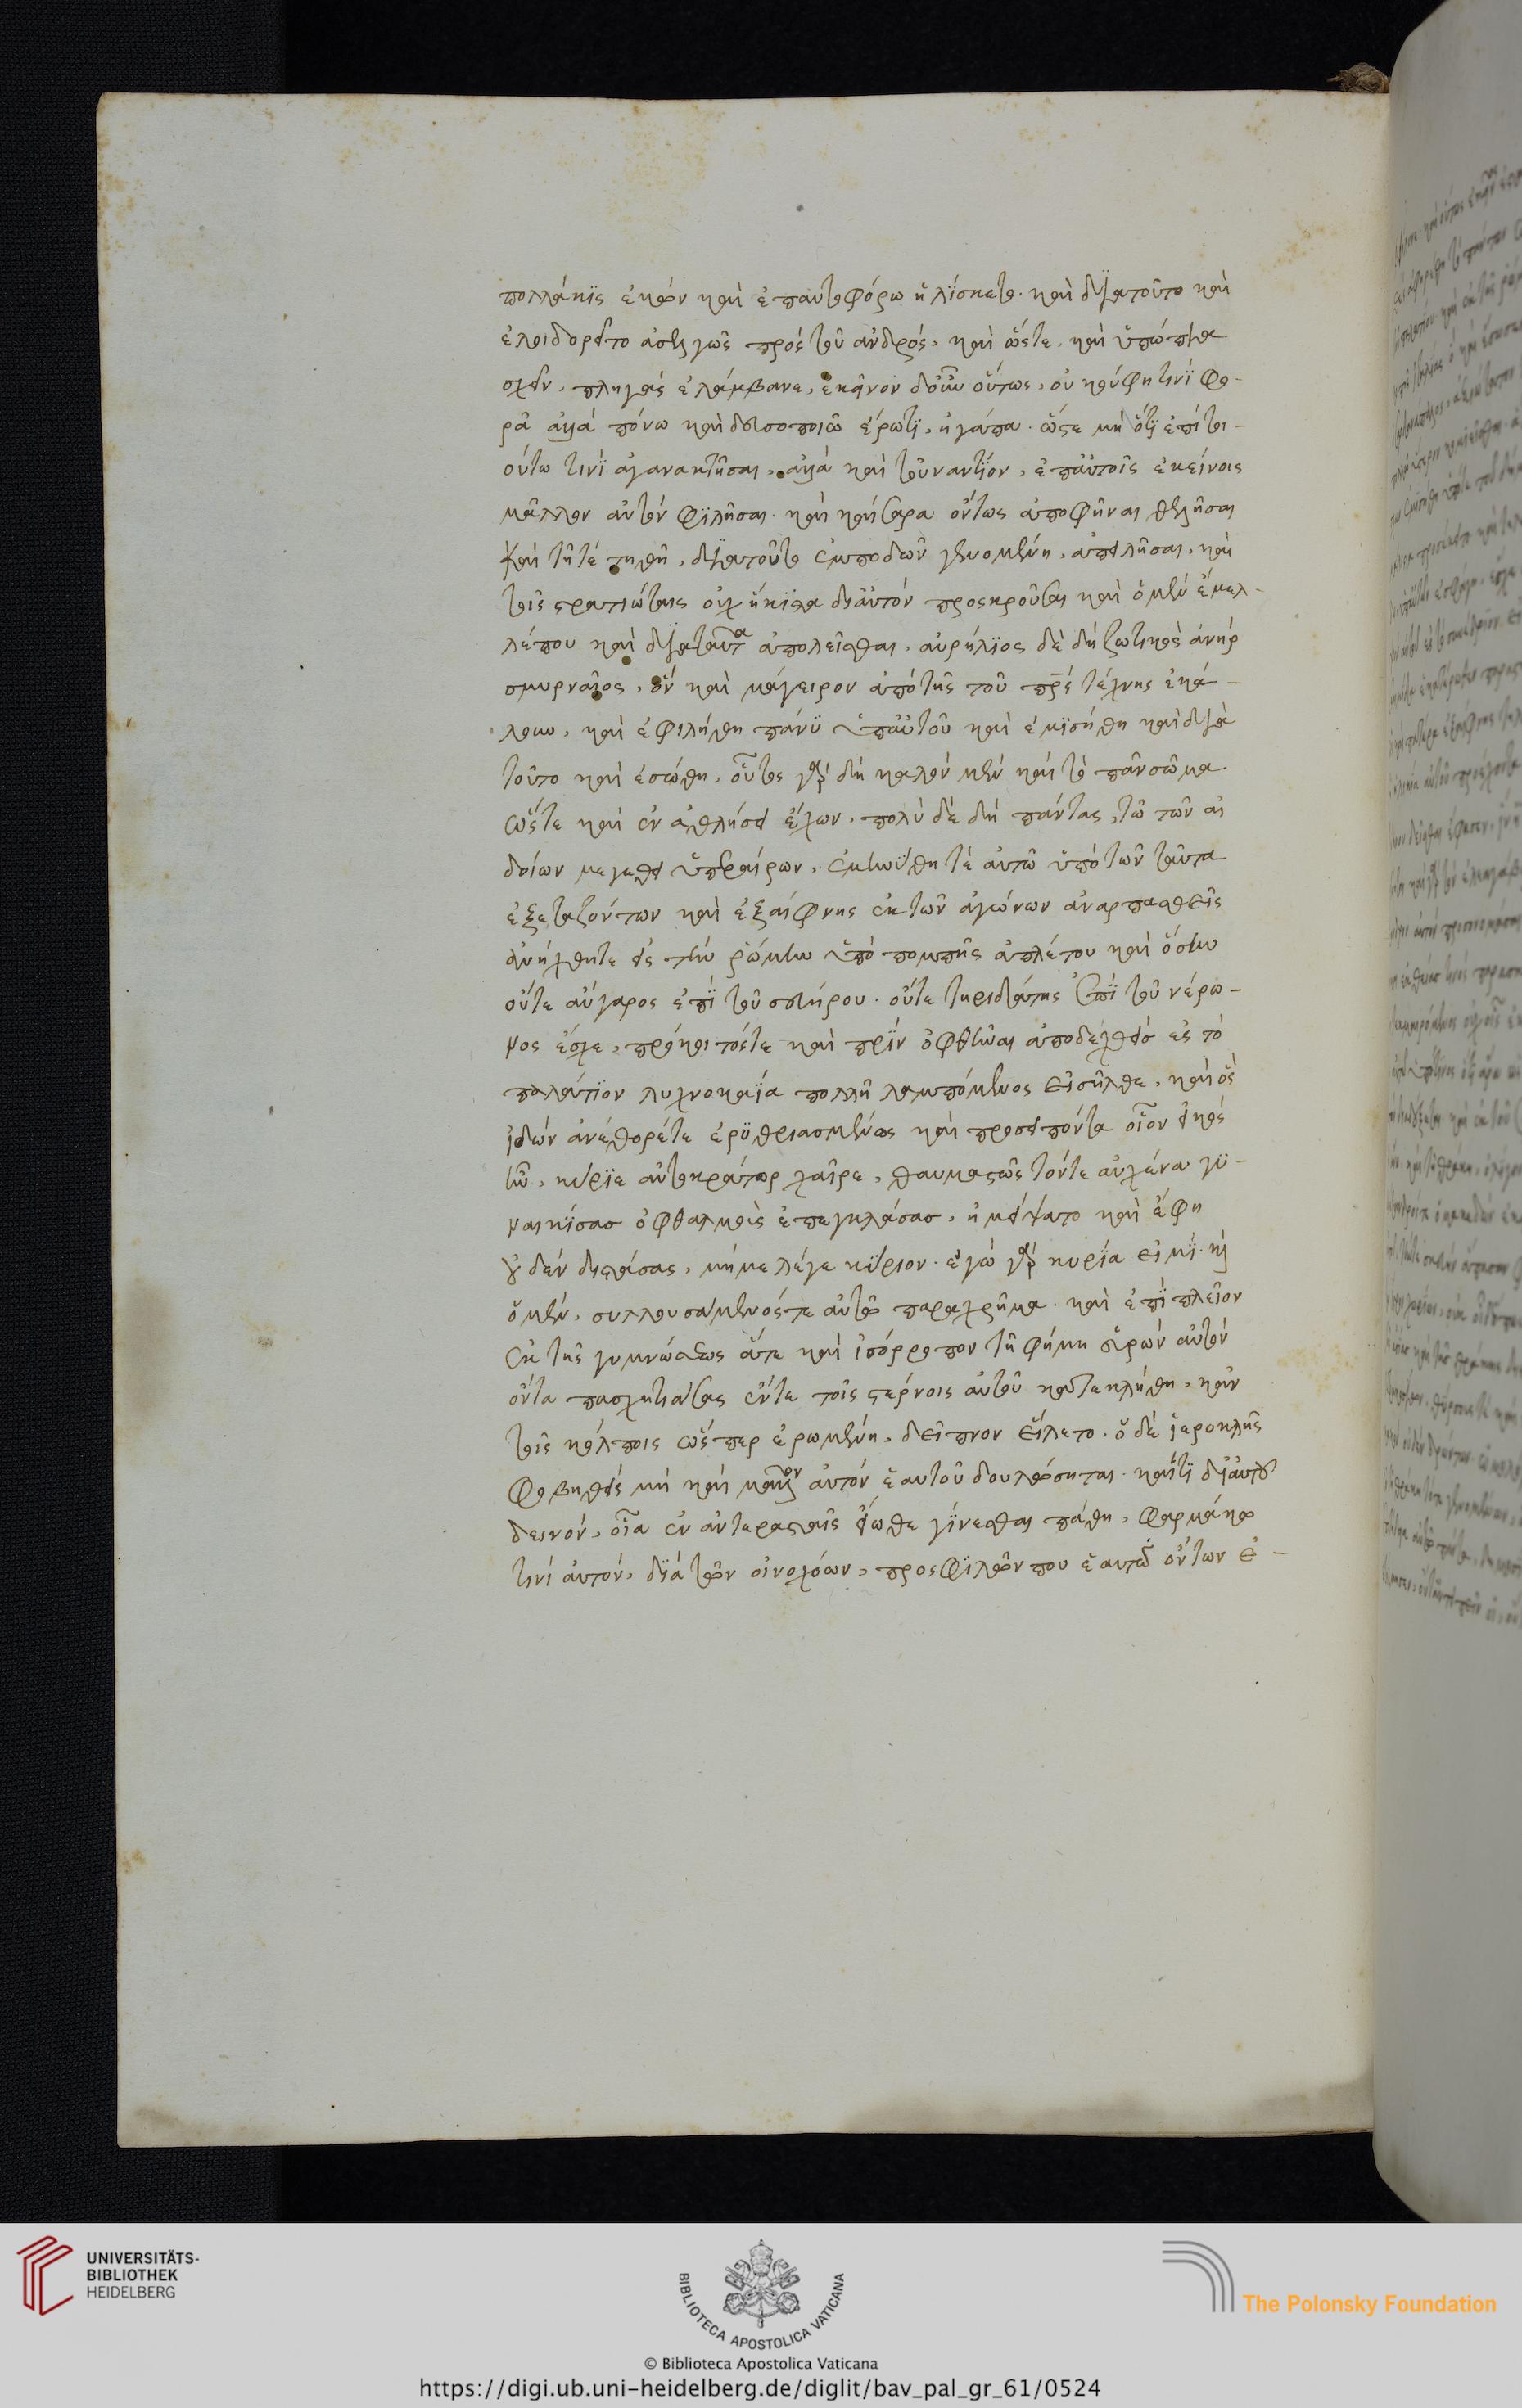 πολλάκις ἑκὼν καὶ ἐπαυτοφόρω ἡλίσκετο. καὶ διατοῦτο καὶ
ἐλοιδορεῖτο ἀσελγῶς πρὸς τοῦ ἀνδρός, καὶ ὥστε καὶ ὑπώπια
σχεῖν, πληγὰς ἐλάμβανε, ἐκεῖνον δ' οὖν οὕτως, οὐ κούφη τινὶ φο-
ρᾶ ἀλλὰ πόνω καὶ δευσοποιῶ ἔρωτι, ἠγάπα. ὥστε μὴ ὅτι ἐπὶ τοι-
ούτω τινὶ ἀγανακτῆσαι, ἀλλὰ καὶ τοὐναντίον, ἐπαὐτοῖς ἐκείνοις
μᾶλλον αὐτὸν φιλῆσαι. καὶ καίσαρα ὄντως ἀποφῆναι θελῆσαι
καὶ τῆτέ τηθῆ, διατοῦτο ἐμποδὼν γενομένη, ἀπειλῆσαι, καὶ
τοῖς στρατιώταις οὐχ ἥκιστα διαὐτὸν προσκροῦσαι καὶ ὁ μὲν ἔμελ-
λέπου καὶ διαταῦτα ἀπολεῖσθαι. αὐρήλιος δὲ δὴ ζωτικὸς ἀνὴρ
σμυρναῖος, ὃν καὶ μάγειρον ἀπὸ τῆς τοῦ πρς τέχνης ἐκά-
λουν, καὶ ἐφιλήθη πάνυ ὑπαὐτοῦ καὶ ἐμισήθη καὶ διὰ
τοῦτο καὶ ἐσώθη, οὗτος γὰρ δὴ καλὸν μὲν καὶ τὸ πᾶν σῶμα
ὥστε καὶ ἐν ἀθλήσει ἔχων, πολὺ δὲ δὴ πάντας, τῶ τῶν αἰ
δοίων μεγέθει ὑπεραίρων, ἐμηνύθη τὲ αὐτῶ ὑπὸ τῶν ταῦτα
ἐξεταζόντων καὶ ἐξαίφνης ἐκ τῶν ἀγώνων ἀναρπασθεὶς
ἀνήχθητε εἰς τὴν ῥώμην ὑπὸ πομπῆς ἀπλέτου καὶ ὅσην
οὔτε αὔγαρος ἐπὶ τοῦ σεβήρου. οὔτε τηριδάτης ἐπὶ τοῦ νέρω-
νος ἔσχε, πρόκοιτόςτε καὶ πρὶν ὀφθῆναι ἀποδειχθεὶς ἐς τὸ
παλάτιον λυχνοκαΐα πολλῆ λαμπόμενος εἰσῆλθε, καὶ ὃς
ἰδὼν ἀνέθορέτε ἐρυθριασμένως καὶ προσειπόντα οἷον εἰκὸς
ἦν, κύριε αὐτοκράτωρ χαῖρε, θαυμαστῶς τόντε αὐχένα γυ-
ναικίσας ὀφθαλμοὺς ἐπεγκλάσας, ἠμείψατο καὶ ἔφη
οὐδὲν διστάσας, μή με λέγε κύριον. ἐγὼ γὰρ κυρία εἰμί. καὶ
ὁ μὲν, συλλουσάμενόςτε αὐτῶ παραχρῆμα. καὶ ἐπὶ πλεῖον
ἐκ τῆς γυμνώσεως ἅτε καὶ ἰσόρροπον τῆ φήμη εὑρὼν αὐτὸν
ὄντα πασχητιάσας ἔντε τοῖς στέρνοις αὐτοῦ κατεκλήθη, κἀν
τοῖς κόλποις ὥσπερ ἐρωμένη, δεῖπνον εἵλετο. ὁ δὲ ἱεροκλῆς
φοβηθεὶς μὴ καὶ μᾶλλον αὐτὸν ἑαυτοῦ δουλώσηται. καί τι διαὐτοῦ
δεινόν, οἷα ἐν ἀντερασταῖς εἴωθε γίνεσθαι πάθη, φαρμάκω
τινὶ αὐτόν, διὰ τῶν οἰνοχόων, προσφιλῶν που ἑαυτῶ ὄντων ἐ-
UNIVERSITÄTS-
BIBLIOTHEK
HEIDELBERG
BIBLIOTECA APOSTOLICA VATICANA
The Polonsky Foundation
© Biblioteca Apostolica Vaticana
https://digi.ub.uni-heidelberg.de/diglit/bav_pal_gr_61/0524